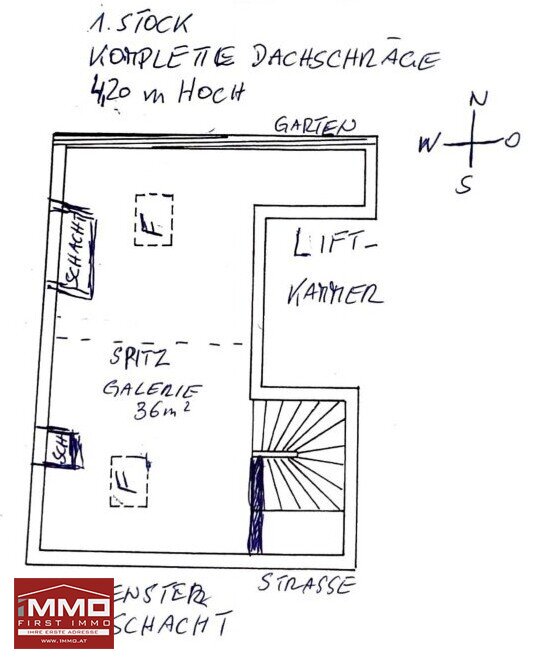 1. STOCK
KOMPLETTE DACHSCHRÄGE
4,20 m HOCH
GARTEN
N
W O
S
F
SCHACHT
LIFT-
KAMMER
SPITZ
GALERIE
36m²
SCH
F
STRASSE
ENSTER
SCHACHT
iMMO
FIRST IMMO
IHRE ERSTE ADRESSE
WWW.IMMO.AT